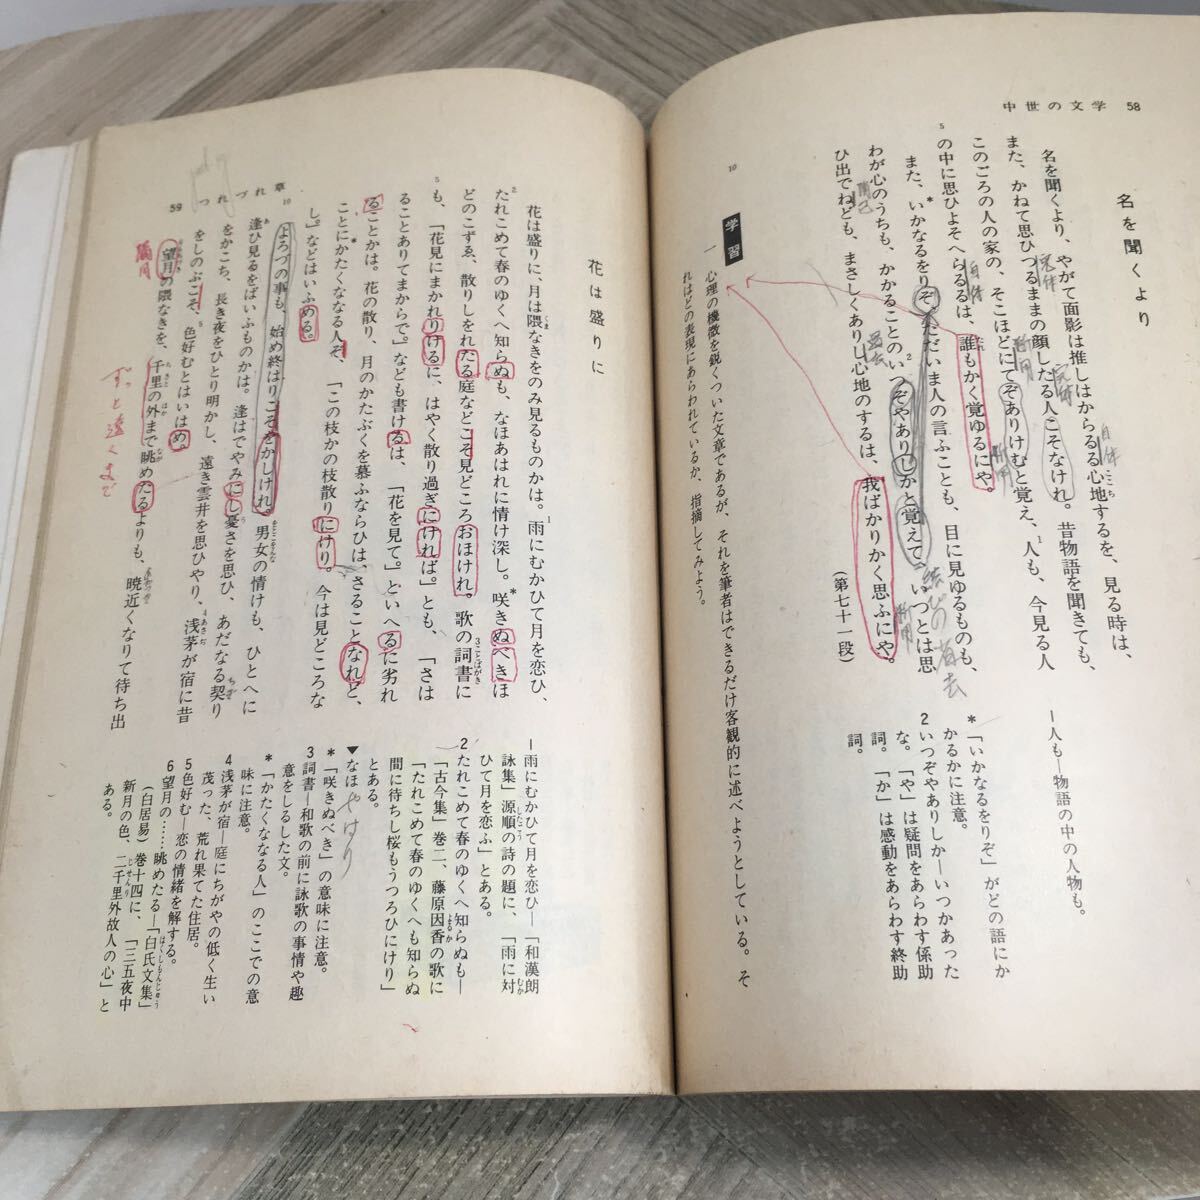 中世の文学 58
名を聞くより
名を聞くより、やがて面影は推しはからるる心地するを、見る時は、
また、かねて思ひつるままの顔したる人こそなけれ。昔物語を聞きても、
このごろの人の家の、そこほどにてぞありけむと覚え、人も、今見る人
の中に思ひよそへらるるは、誰もかく覚ゆるにや。
また、いかなるをりぞ、ただいま人の言ふことも、目に見ゆるものも、
わが心のうちも、かかることのいつぞやありしかと覚えて、いつとは思
ひ出でねども、まさしくありし心地のするは、我ばかりかく思ふにや。
(第七十一段)
5
10
結びの省去
学習
一 心理の機微を鋭くついた文章であるが、それを筆者はできるだけ客観的に述べようとしている。そ
れはどの表現にあらわれているか、指摘してみよう。
1人も―物語の中の人物も。
*「いかなるをりぞ」がどの語にか
かるかに注意。
2いつぞやありしか―いつかあった
な。「や」は疑問をあらわす係助
詞。「か」は感動をあらわす終助
詞。
花は盛りに
花は盛りに、月は隈なきをのみ見るものかは。雨にむかひて月を恋ひ、
たれこめて春のゆくへ知らぬも、なほあはれに情け深し。咲きぬべきほ
どのこずゑ、散りしをれたる庭などこそ見どころおほけれ。歌の詞書に
も、「花見にまかれりけるに、はやく散り過ぎにければ。」とも、「さは
ることありてまからで。」なども書けるは、「花を見て。」といへるに劣れ
ることかは。花の散り、月のかたぶくを慕ふならひは、さることなれど、
ことにかたくななる人ぞ、「この枝かの枝散りにけり。今は見どころな
し。」などはいふめる。
よろづの事も、始め終はりこそをかしけれ。男女の情けも、ひとへに
逢ひ見るをばいふものかは。逢はでやみにし憂さを思ひ、あだなる契り
をかこち、長き夜をひとり明かし、遠き雲井を思ひやり、浅茅が宿に昔
をしのぶこそ、色好むとはいはめ。
望月の隈なきを、千里の外まで眺めたるよりも、暁近くなりて待ち出
5
10
満月
ずっと遠くまで
59 つれづれ草
1雨にむかひて月を恋ひ―「和漢朗
詠集」源順の詩の題に、「雨に対
ひて月を恋ふ」とある。
2たれこめて春のゆくへ知らぬも―
「古今集」巻二、藤原因香の歌に
「たれこめて春のゆくへも知らぬ
間に待ちし桜もうつろひにけり」
とある。
▼なほ やはり
*「咲きぬべき」の意味に注意。
3詞書―和歌の前に詠歌の事情や趣
意をしるした文。
*「かたくななる人」のここでの意
味に注意。
4浅茅が宿―庭にちがやの低く生い
茂った、荒れ果てた住居。
5色好む―恋の情緒を解する。
6望月の……眺めたる―「白氏文集」
(白居易)巻十四に、「三五夜中
新月の色、二千里外故人の心」と
ある。